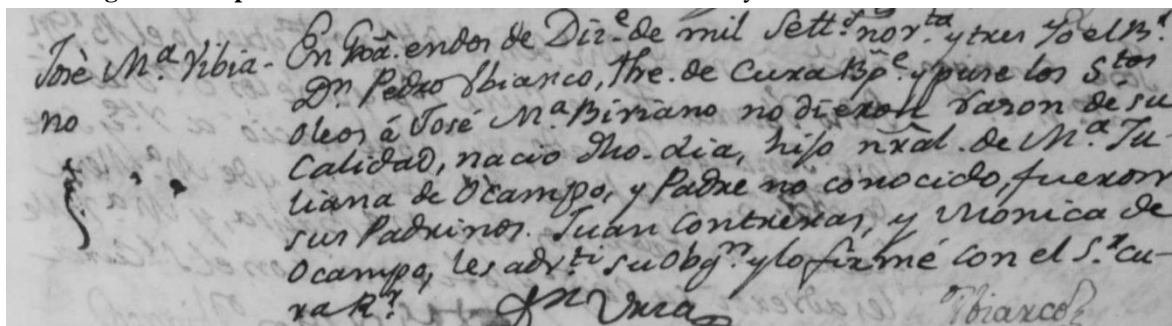 José M.ª Vibia-
no
En Goā. en dos de Diz.e de mil Sett.s nov.ta y tres Yo el B.r
D.n Pedro Ybianco, The. de Cura Bp.e y puse los S.tos
oleos á José M.ª Biviano no dieron razon de su
Calidad, nacio dho. dia, hijo nral. de M.ª Ju
liana de Ocampo, y Padre no conocido, fueron
sus Padrinos. Juan Contreras, y Monica de
Ocampo, les adv.ti su Obg.n y lo firmé con el S.r cu-
ra R.r
Ybianco